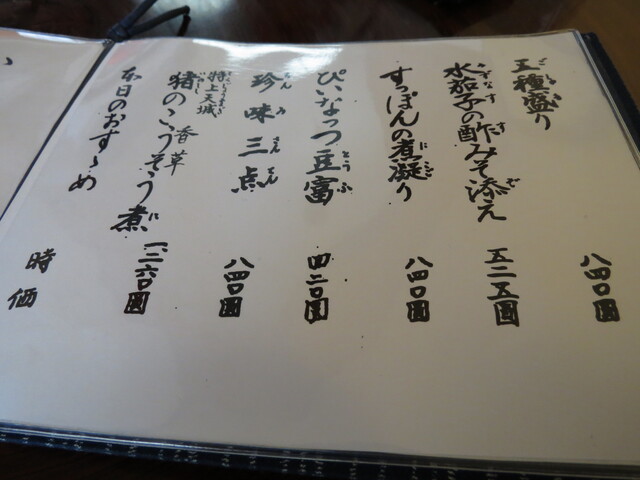 五種盛り 八四〇圓
水茄子の酢みそ添え 五二五圓
すっぽんの煮凝り 八四〇圓
ぴぃなっつ豆富 四二〇圓
珍味三点 八四〇圓
特上天城
猪のこうそう煮 一、二六〇圓
香草
本日のおすゝめ 時価